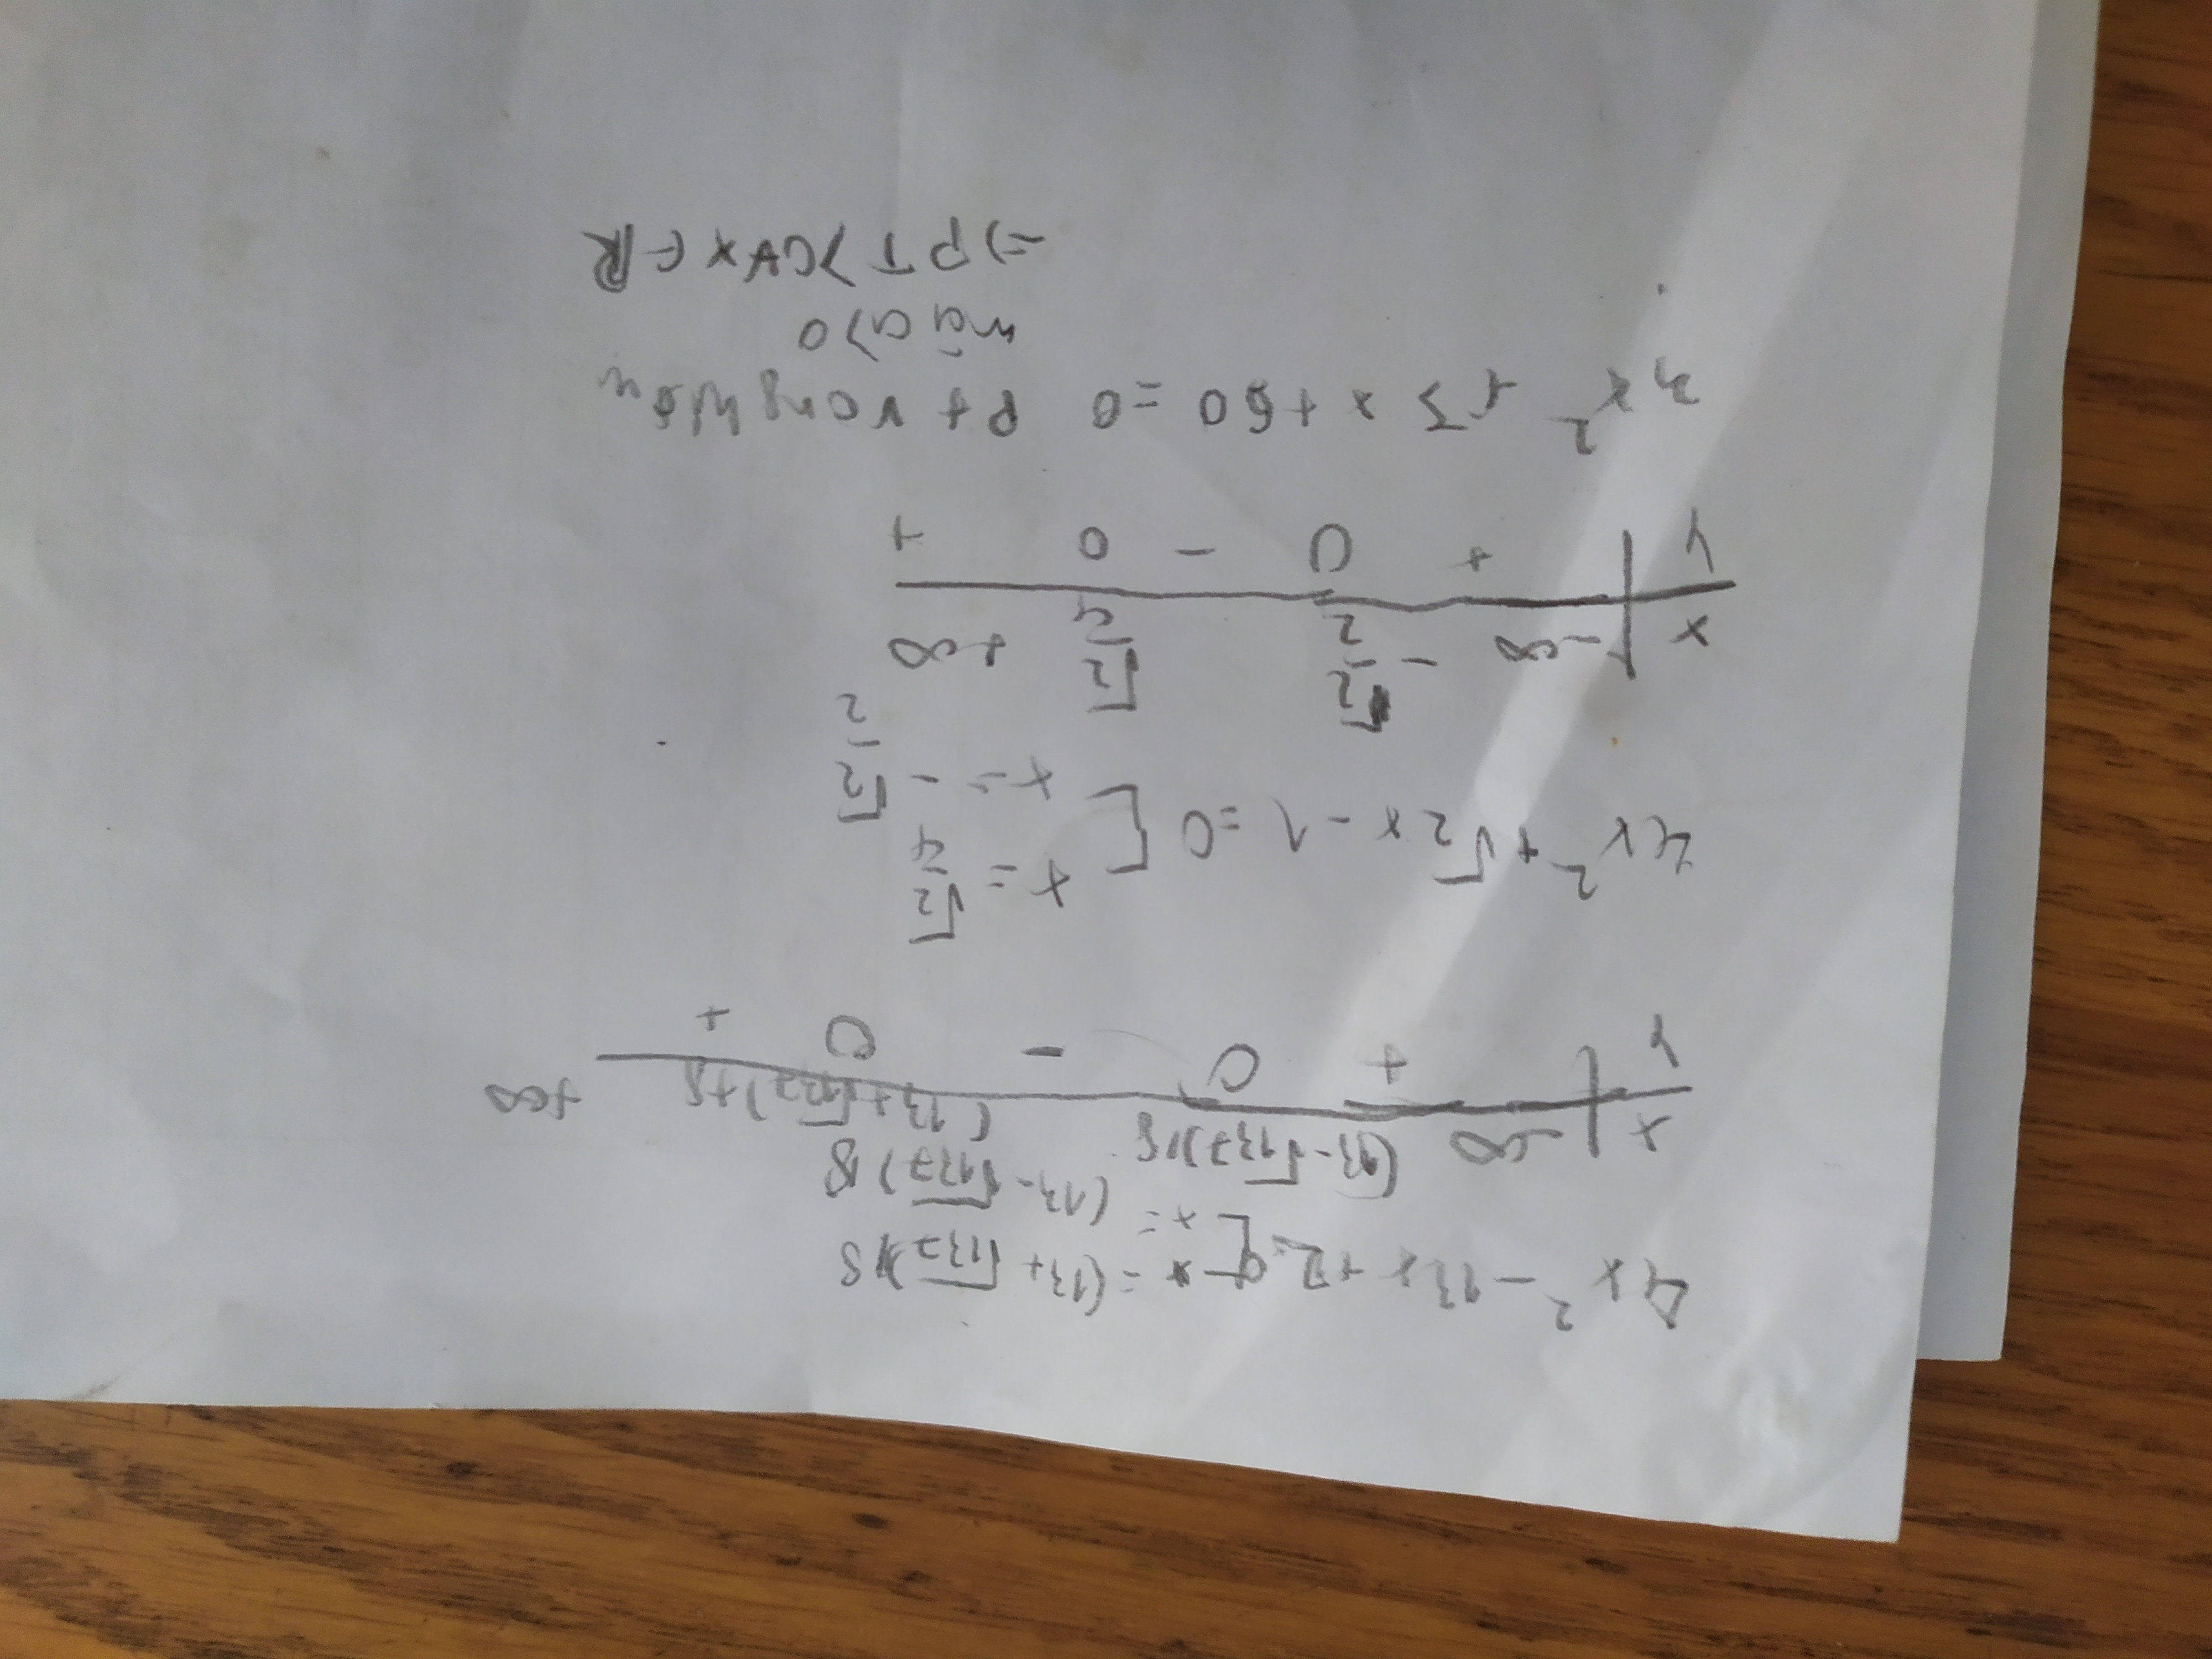 4x² - 13x + 2 = 0 [ x = (13+√137)/8
x = (13-√137)/8
x | -∞ (13-√137)/8 (13+√137)+8 +∞
y | + 0 - 0 +
4x² + √2 x - 1 = 0 [ x = √2/4
x = - √2/2
x | -∞ -√2/2 √2/4 +∞
y | + 0 - 0 +
3x² +5x + 60 = 0 pt vô nghiệm
mà a>0
=) PT >0 ∀x ∈ R